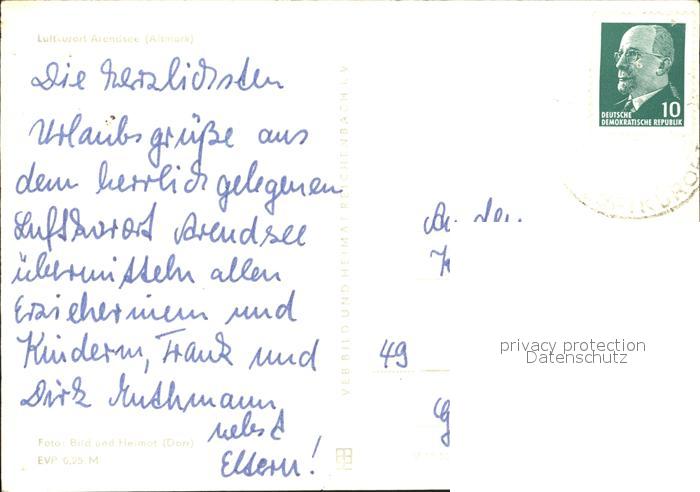 Luftkurort Arendsee (Altmark)
Die herzlichsten
Urlaubsgrüße aus
dem herrlich gelegenen
Luftkurort Arendsee
übermitteln allen
Erzieherinnen und
Kindern, Frank und
Dirk Muthmann
nebst
Eltern!
Foto: Bild und Heimat (Dorr)
EVP 0,25 M
VEB BILD UND HEIMAT REICHENBACH I. V.
10
DEUTSCHE
DEMOKRATISCHE REPUBLIK
An
49
privacy protection
Datenschutz